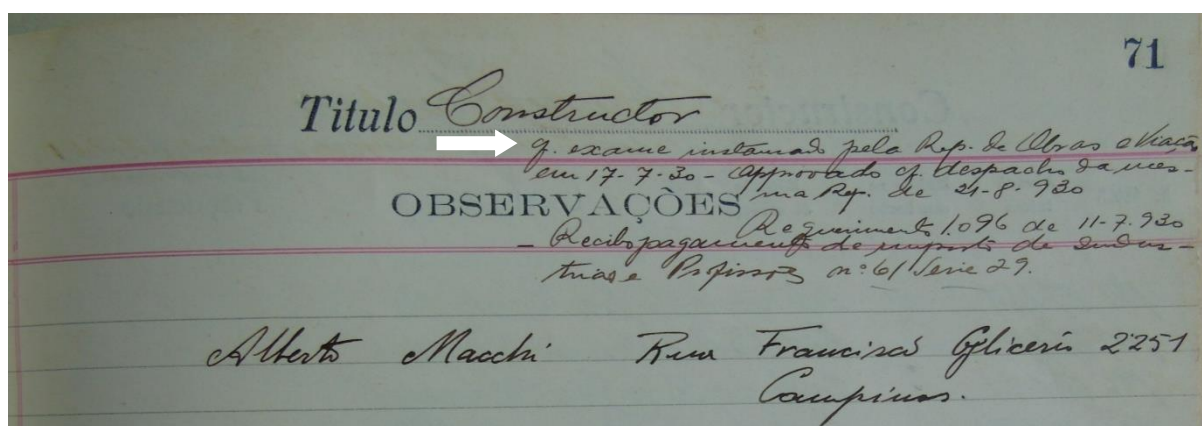 71
Titulo Constructor
cf. exame instaurado pela Rep. de Obras e Viação
em 17-7-30 - Approvado cf. despacho da mes-
OBSERVAÇÕES ma Rep. de 21-8-930
Requerimento 1.096 de 11-7-930
- Recibo pagamento de imposto de Indus-
trias e Profissões nº 61 Serie 29.
Alberto Macchi Rua Francisco Glicerio 2251
Campinas.